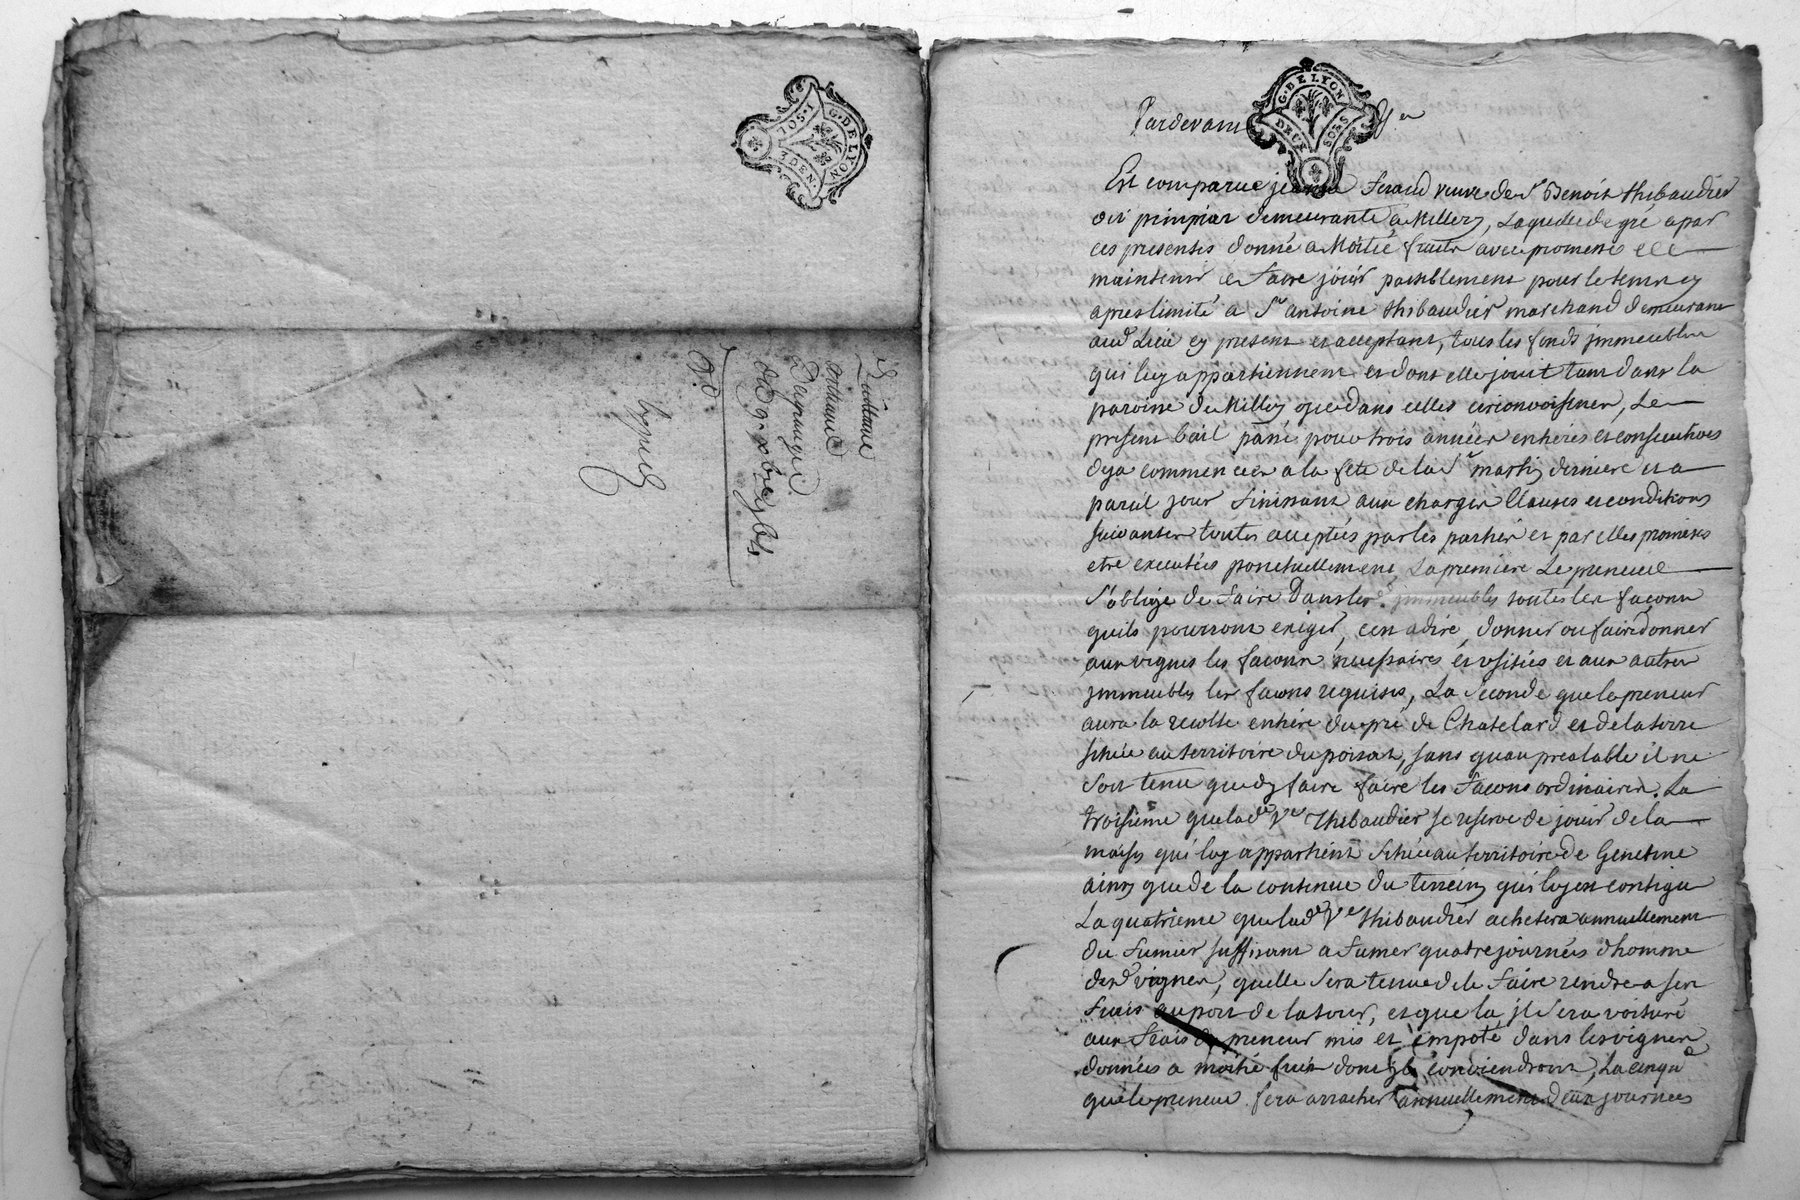 1 SOL
3 DEN.
G. DE LYON
Quittance
G. DE LYON
DEUX SOLS
Pardevant
Est comparue jeanne feraud veuve de Sr Benoit thibaudier
demeurante a Millery, Laquelle de gré a par
ces presentes donné a Moitié fruits avec promesse de
maintenir et faire jöuir paisiblement pour le tems cy
apres limité a Sr antoine thibaudier marchand demeurant
aud lieu cy present et acceptant, tous les fonds jmmeubles
qui luy appartiennent et dont elle jouit tant dans la
paroisse de Millery que dans celles circonvoisines, Le
present bail passé pour trois années entieres et consecutives
deja commencées a la fete de la St martin derniere et a
pareil jour finissant aux charges Clauses et conditions
suivantes toutes acceptées par les parties et par elles promises
etre executées ponctuellement, La premiere Le preneur
s'oblige de faire Dans lesd. jmmeubles toutes les façons
quils pourront exiger, cest adire, donner ou faire donner
aux vignes les façons necessaires et usitées et aux autres
jmmeubles les façons requises, La seconde que le preneur
aura la recolte entiere du pré de Chatelard et de la terre
située au territoire du poirat, sans quau prealable il ne
soit tenu que dy faire faire les façons ordinaires. La
troisieme que lade Ve Thibaudier se reserve de jouir de la
maison qui luy appartient située au territoire de Genetine
ainsy que de la contenue du terrein qui luy est contigu
La quatrieme que lade Ve thibaudier achetera annuellement
du fumier suffisant a fumer quatre journées dhomme
desd vignes, quelle sera tenue de le faire rendre a ses
frais au port de la tour, et que la jl sera voituré
aux frais du preneur mis et emporté dans les vignes
données a moitié fruit dont jls conviendront, La cinqe
que le preneur fera arracher annuellement deux journées